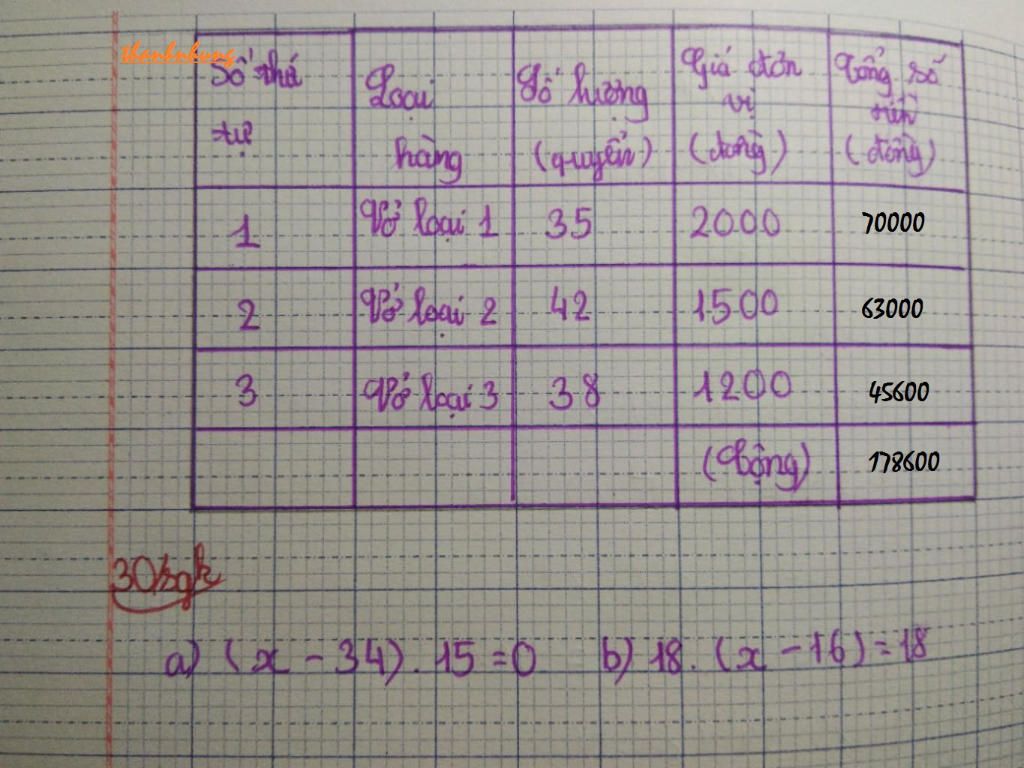 thanhnhung
Số thứ tự | Loại hàng | Số lượng (quyển) | Giá đơn vị (đồng) | Tổng số tiền (đồng)
1 | Vở loại 1 | 35 | 2000 | 70000
2 | Vở loại 2 | 42 | 1500 | 63000
3 | Vở loại 3 | 38 | 1200 | 45600
(Cộng) | 178600
30/sgk
a) (x - 34). 15 = 0 b) 18. (x - 16) = 18